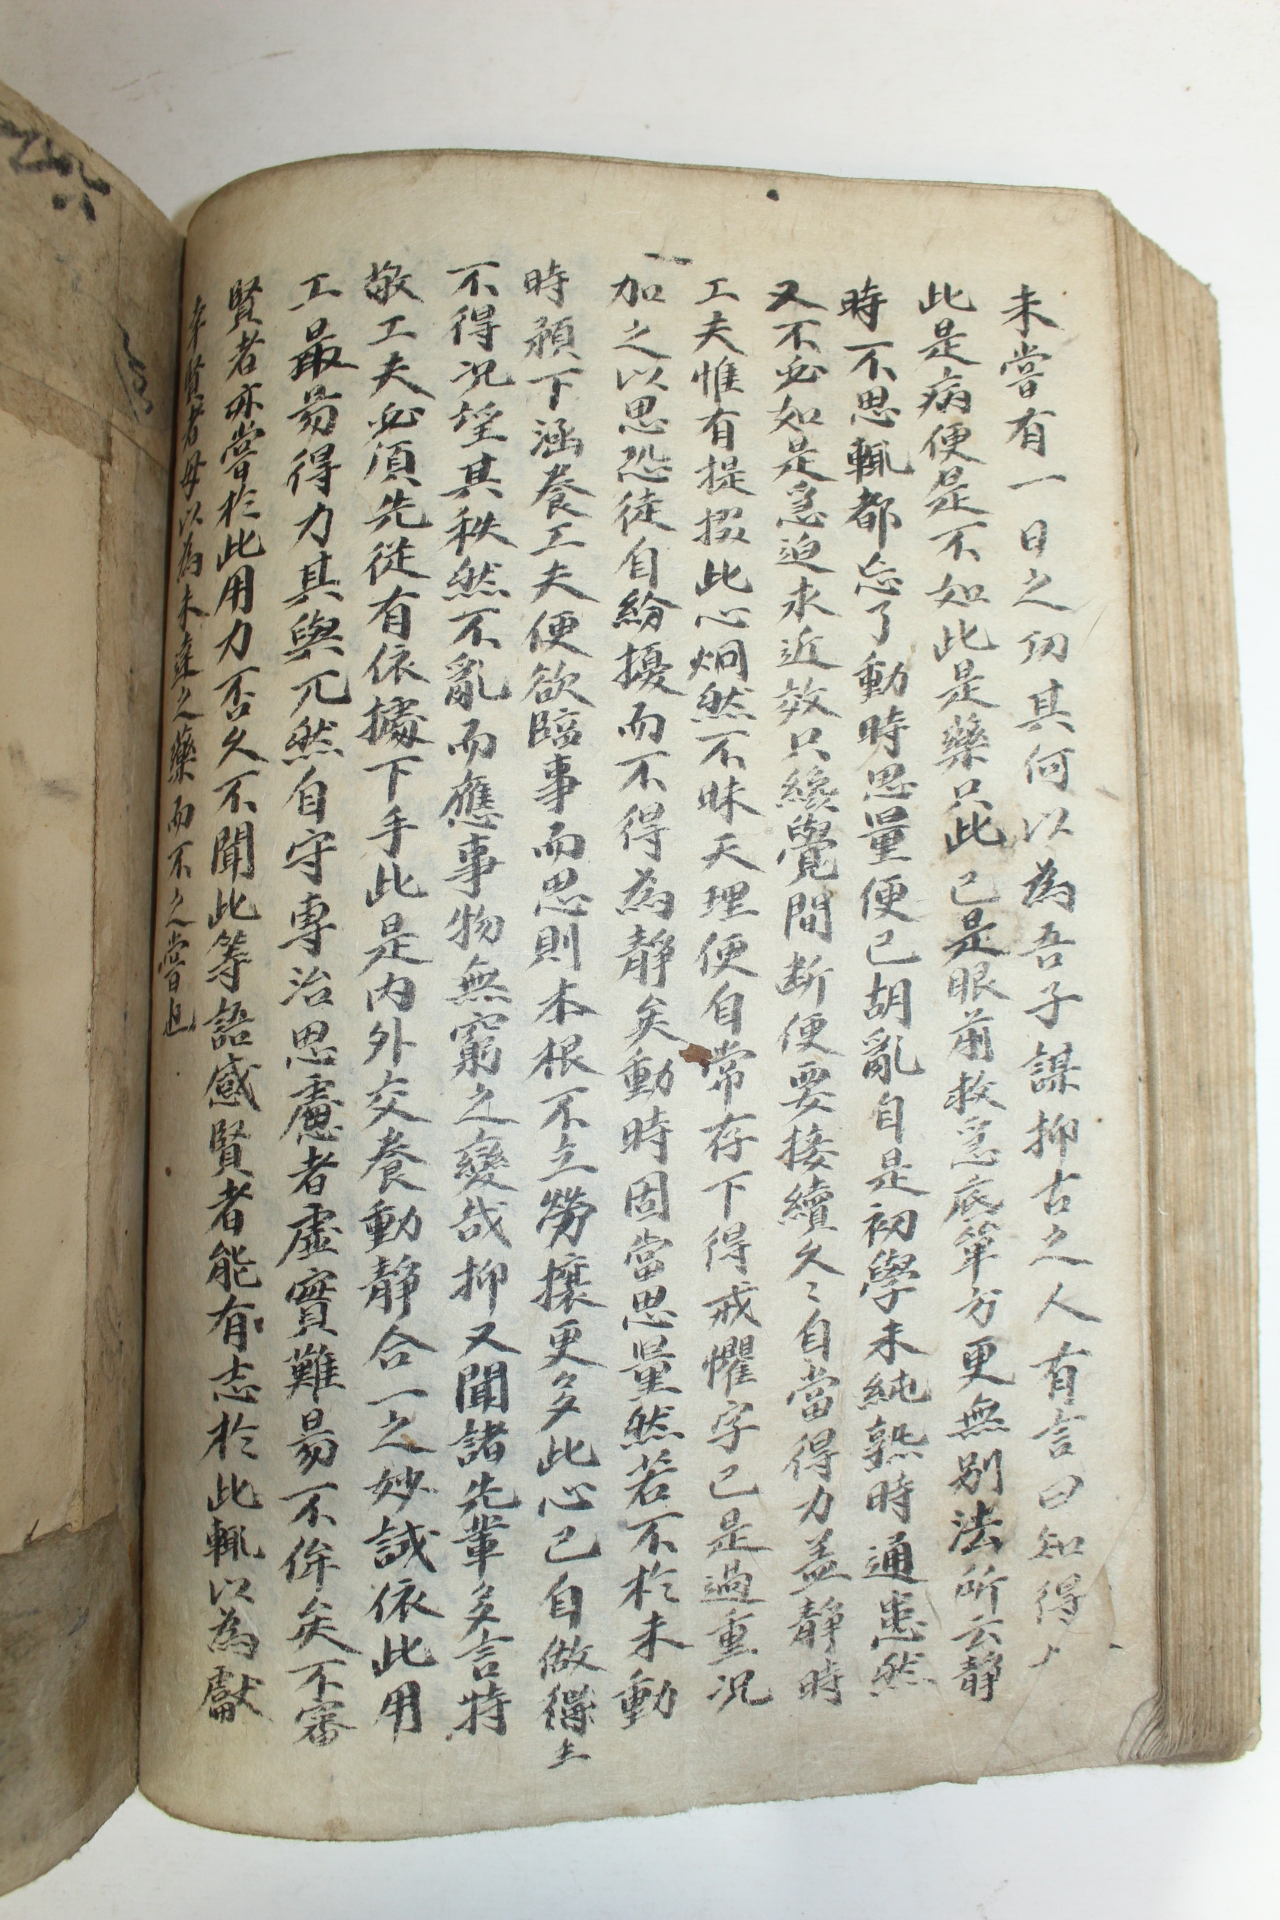 未嘗有一日之功其何以為吾子謀抑古之人有言曰知得
此是病便是不如此是藥只此已是眼前救急底單方更無別法所云靜
時不思輒都忘了動時思量便已胡亂自是初學未純熟時通患然
又不必如是急迫求近效只纔覺間斷便要接續久〻自當得力盖靜時
工夫惟有提掇此心烱然不昧天理便自常存下得戒懼字已是過重况
加之以思恐徒自紛擾而不得為靜矣動時固當思量然若不於未動
時頩下涵養工夫便欲臨事而思則本根不立勞攘更多此心已自做得主
不得况望其秩然不亂而應事物無窮之變哉抑又聞諸先輩多言特
敬工夫必須先從有依據下手此是內外交養動靜合一之妙誠依此用
工最易得力其與兀然自守專治思慮者虛實難易不侔矣不審
賢者亦嘗於此用力否久不聞此等語感賢者能有志於此輒以為獻
幸賢者毋以為未達之藥而不之嘗也